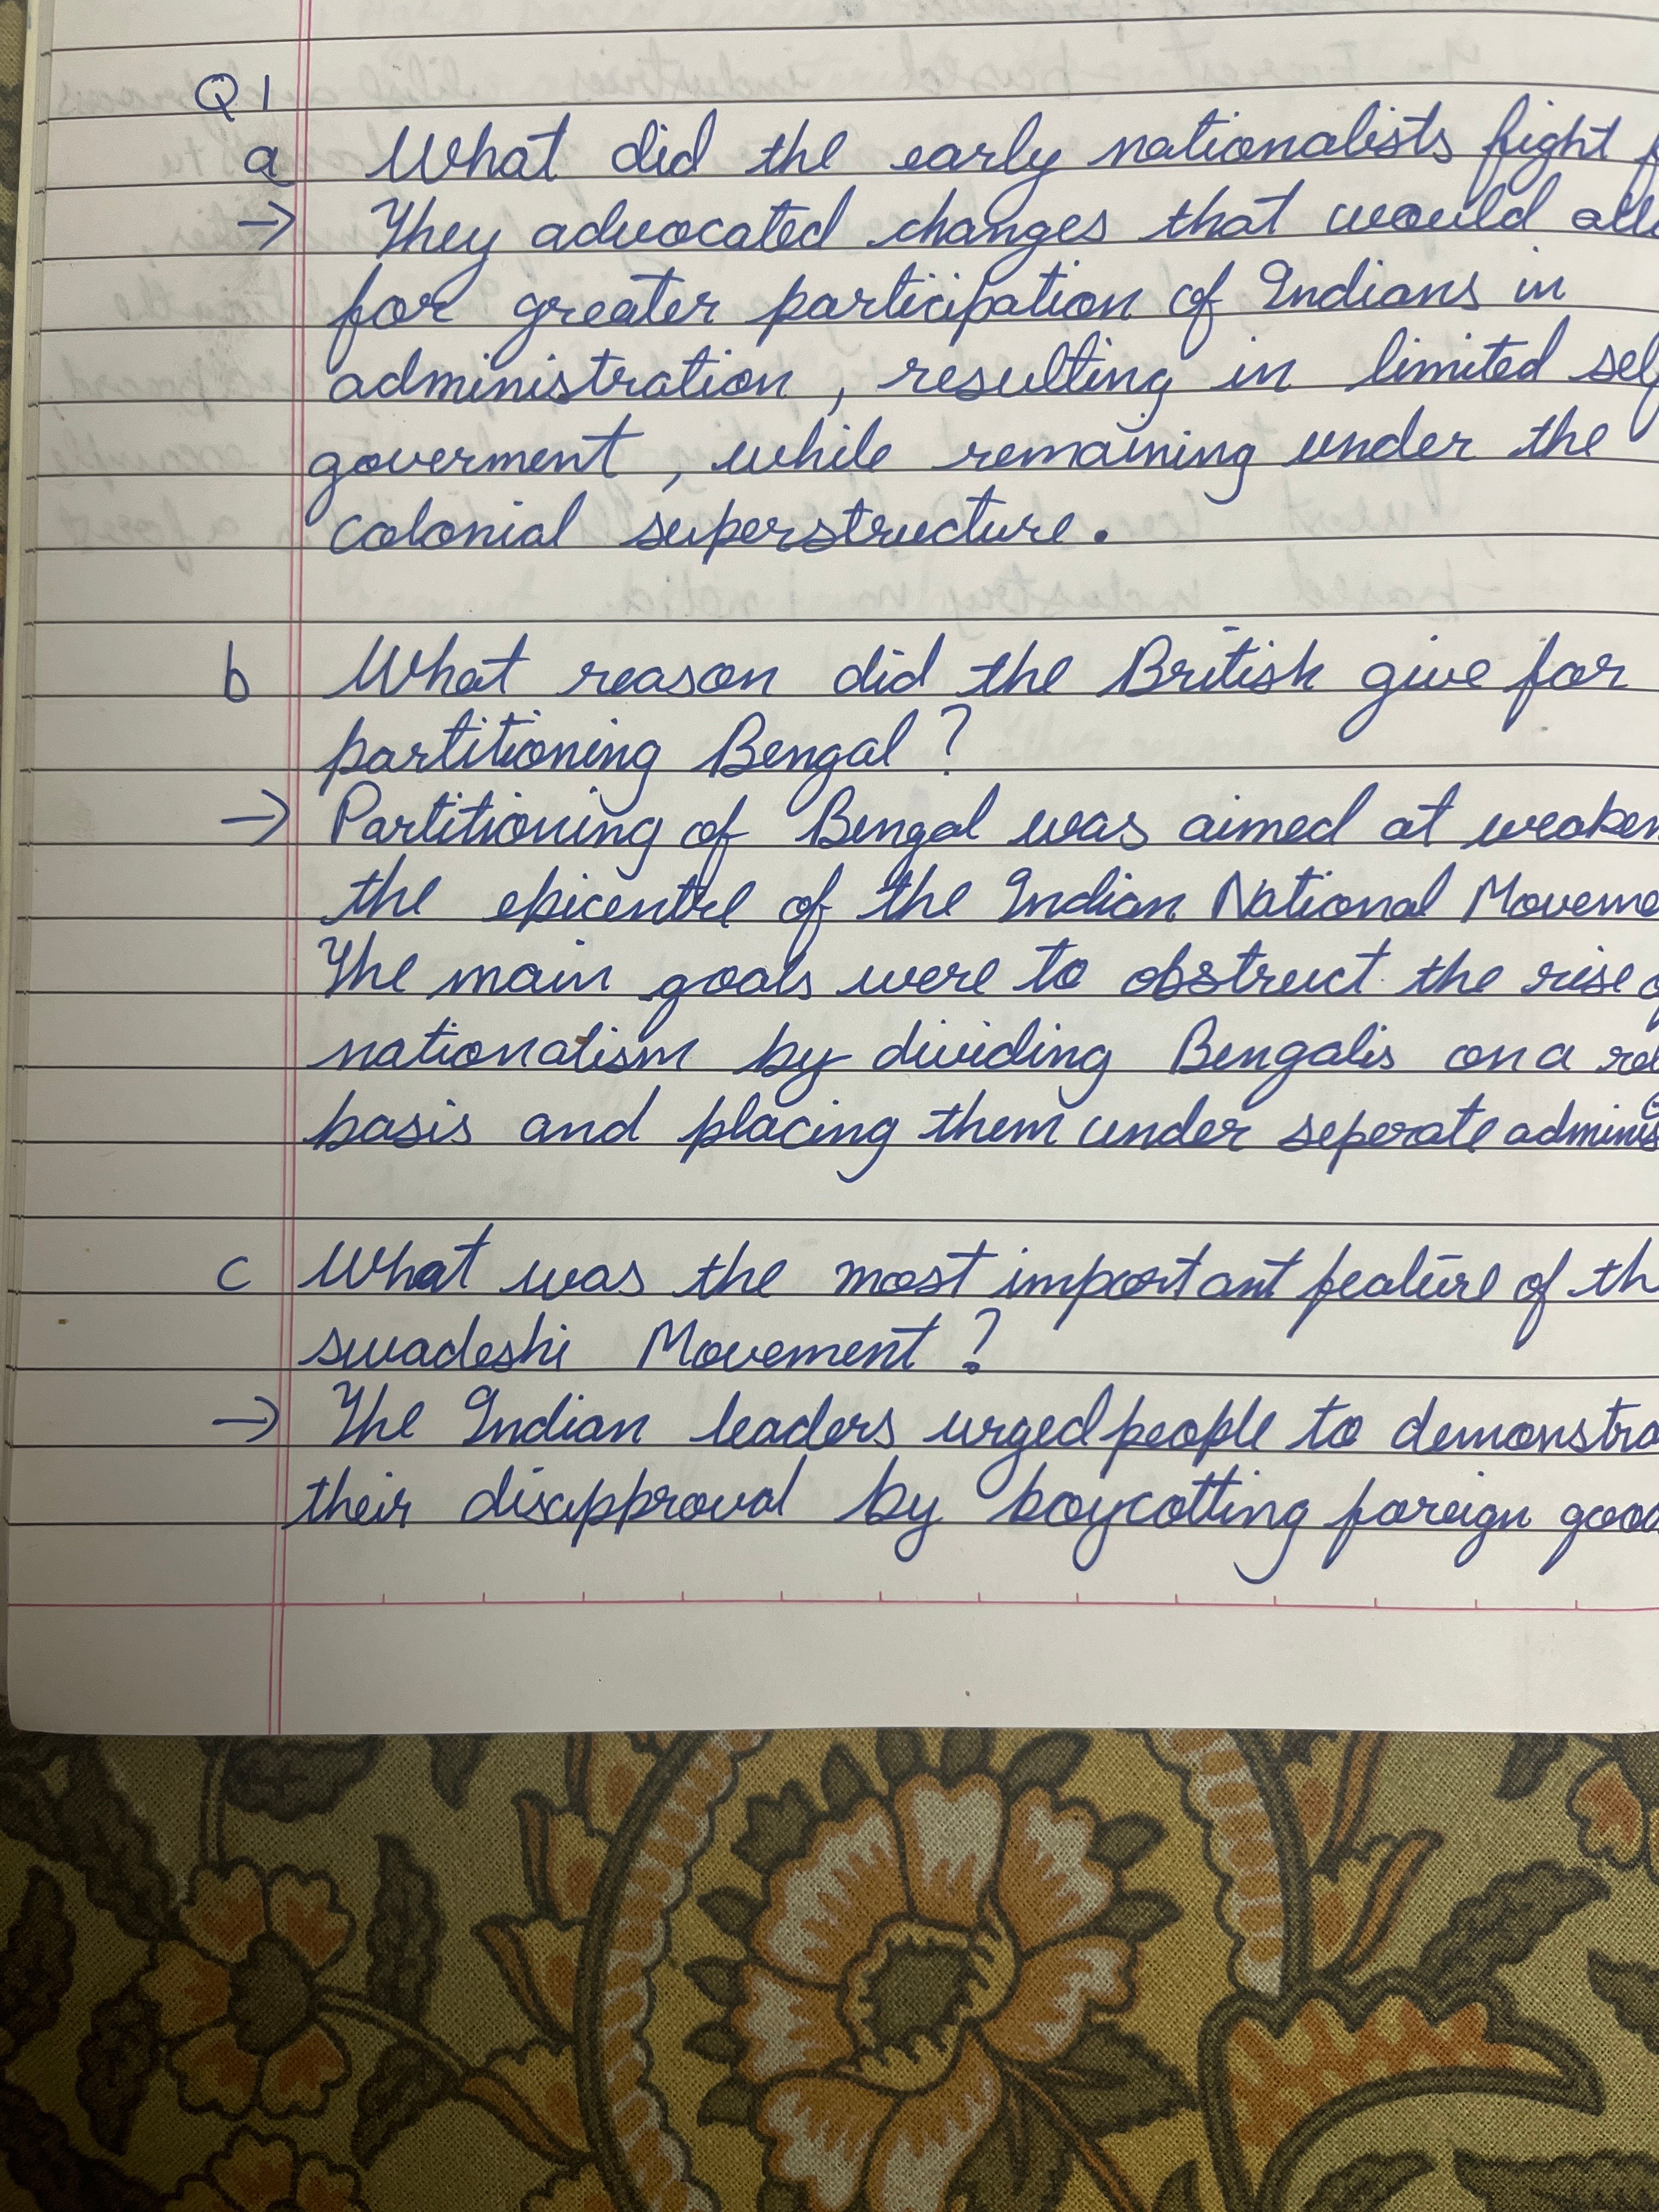 Q1
a What did the early nationalists fight
→ They advocated changes that would
for greater participation of Indians in
administration, resulting in limited
goverment, while remaining under the
colonial superstructure.
b What reason did the British give for
partitioning Bengal?
→ Partitioning of Bengal was aimed at
the epicentre of the Indian National
The main goals were to obstruct the rise
nationalism by dividing Bengalis on a
basis and placing them under seperate
c What was the most important feature of
swadeshi Movement?
→ The Indian leaders urged people to
their disapproval by boycotting foreign